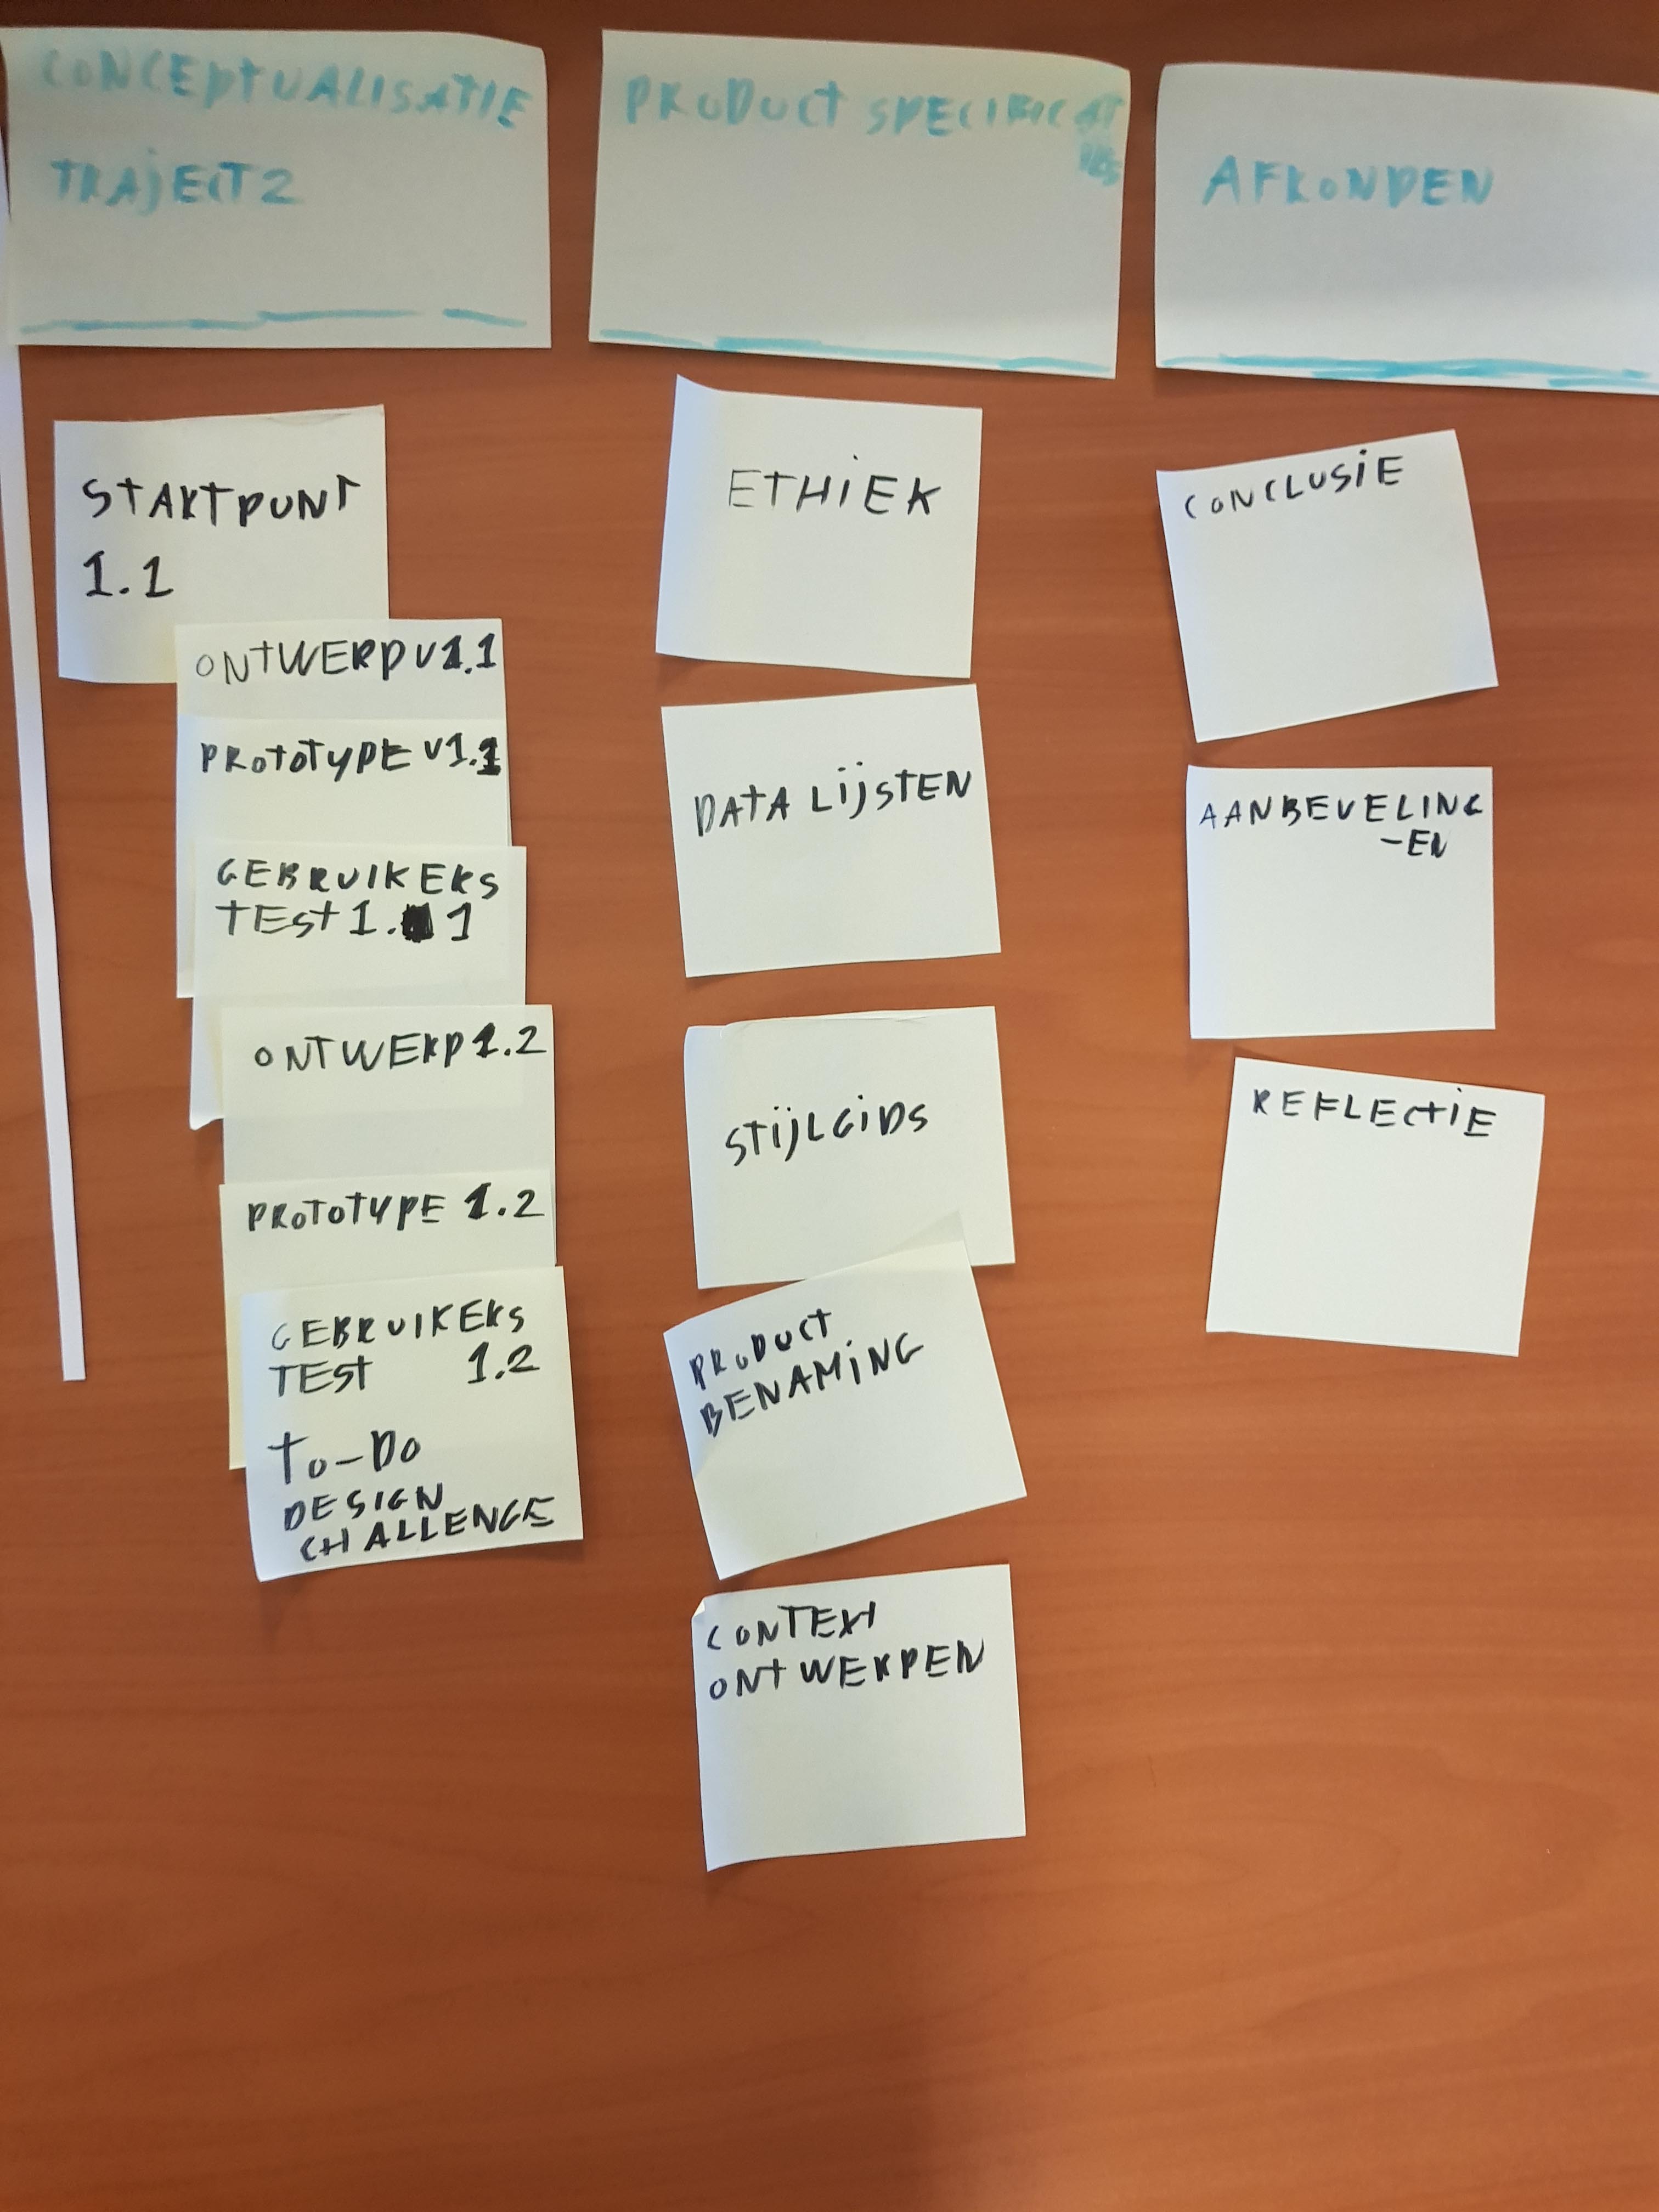 CONCEPTUALISATIE
TRAJECT 2
STARTPUNT
1.1
ONTWERP V1.1
PROTOTYPE V1.1
GEBRUIKERS
TEST 1. 1
ONTWERP 1.2
PROTOTYPE 1.2
GEBRUIKERS
TEST 1.2
TO-DO
DESIGN
CHALLENGE
PRODUCT SPECIFICAT
IES
ETHIEK
DATA LIJSTEN
STIJLGIDS
PRODUCT
BENAMING
CONTEXT
ONTWERPEN
AFRONDEN
CONCLUSIE
AANBEVELING
-EN
REFLECTIE